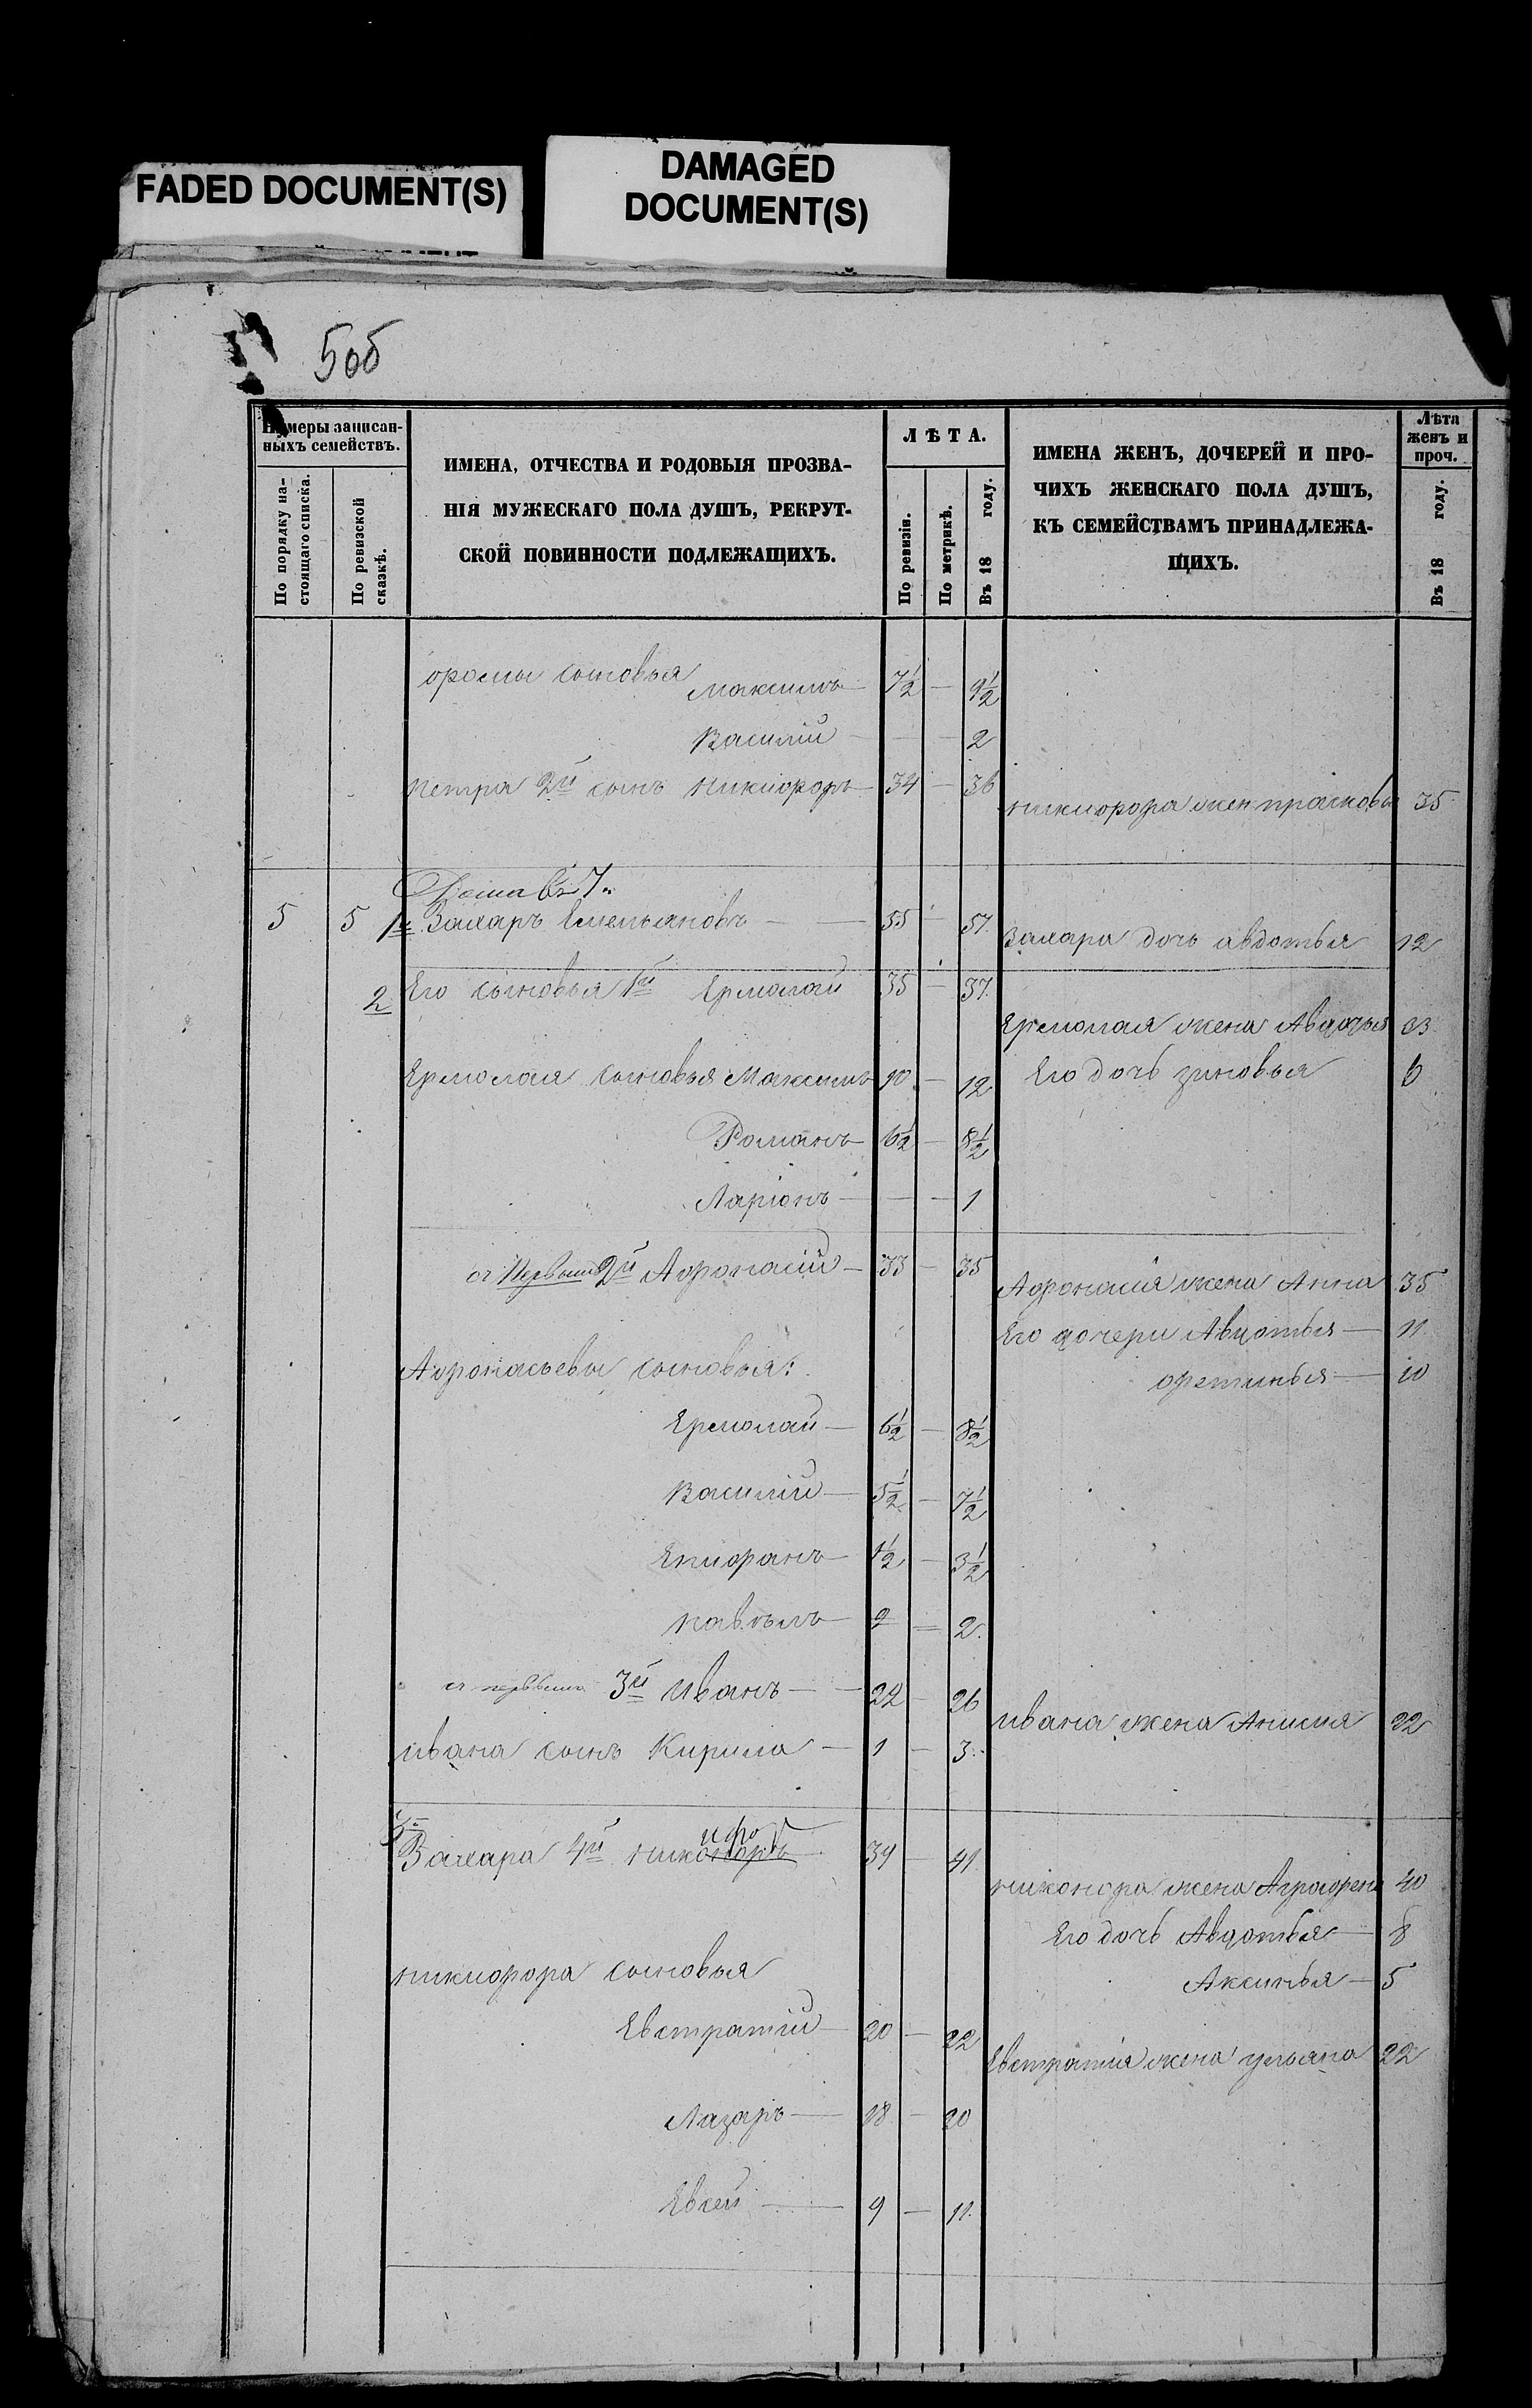 FADED DOCUMENT(S)
DAMAGED
DOCUMENT(S)
5об
Номеры записан-
ныхъ семействъ.
По порядку на-
стоящаго списка.
По ревизской
сказкѣ.
ИМЕНА, ОТЧЕСТВА И РОДОВЫЯ ПРОЗВА-
НІЯ МУЖЕСКАГО ПОЛА ДУШЪ, РЕКРУТ-
СКОЙ ПОВИННОСТИ ПОДЛЕЖАЩИХЪ.
ЛѢТА.
По ревизіи.
По метрикѣ.
Въ 18 году.
ИМЕНА ЖЕНЪ, ДОЧЕРЕЙ И ПРО-
ЧИХЪ ЖЕНСКАГО ПОЛА ДУШЪ,
КЪ СЕМЕЙСТВАМЪ ПРИНАДЛЕЖА-
ЩИХЪ.
Лѣта
женъ и
проч.
Въ 18 году.
фомы сыновья Максимъ — 7½ — 9½
Василій — — — 2
петра 2й сынъ Никифоръ — 34 — 36
никифора жен прасковья 35
5 5 1. Захаръ Емельяновъ — — 55 — 57
Захара дочь авдотья 12
2 Его сыновья 1й Ермолай 35 — 37
Ермолая жена Авдотья 33
Ермолая сыновья Максимъ 10 — 12
Его дочь зиновья 6
Романъ 6½ — 8½
Ларіонъ — — — 1
съ Первымъ 2й Афонасій — 33 — 35
Афонасія жена Анна 35
Его дочери Авдотья — 11
Афонасьевы сыновья:
фетинья — 10
Ермолай — 6½ — 8½
Василій — 5½ — 7½
Епифанъ — 1½ — 3½
павылъ — 2 — 2
съ первымъ 3й иванъ — — 24 — 26
ивана жена Анисия 22
ивана сынъ Кирила — 1 — 3
3.
ифо
Захара 4й никоноръ 39 — 41
никонора жена Аграфена 40
Его дочь Авдотья — 8
никифора сыновья
Аксинья — 5
Евстратій — 20 — 22
Евстратія жена ульяна 22
Лазаръ — 18 — 20
Евсей — 9 — 11